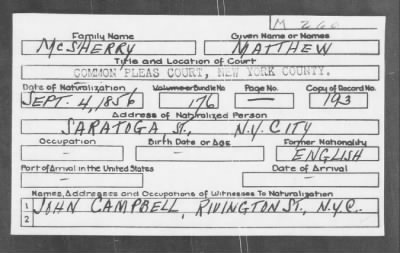 M 260
Family Name Given Name or Names
McSHERRY MATTHEW
Title and Location of Court
COMMON PLEAS COURT, NEW YORK COUNTY.
Date of Naturalization Volume or Bundle No Page No. Copy of Record No.
SEPT. 4, 1856 176 — 193
Address of Naturalized Person
SARATOGA ST., N.Y. CITY
Occupation Birth Date or Age Former Nationality
— — ENGLISH
Port of Arrival in the United States Date of Arrival
— —
Names, Addresses and Occupations of Witnesses To Naturalization
1 JOHN CAMPBELL, RIVINGTON ST., N.Y.C.
2